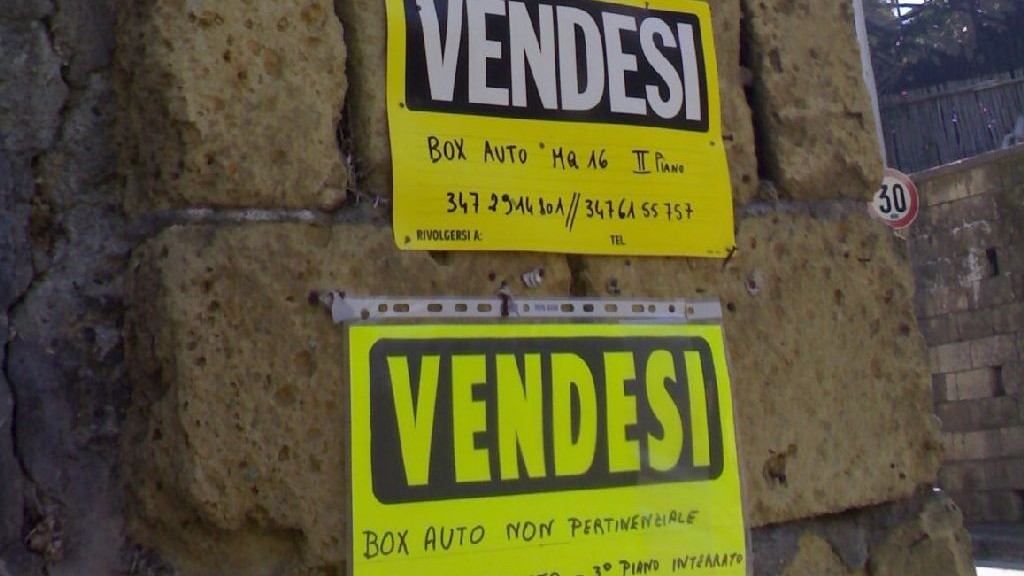 VENDESI
BOX AUTO MQ 16 II PIANO
347 2914801//3476155757
RIVOLGERSI A: TEL
30
VENDESI
BOX AUTO NON PERTINENZIALE
3° PIANO INTERRATO